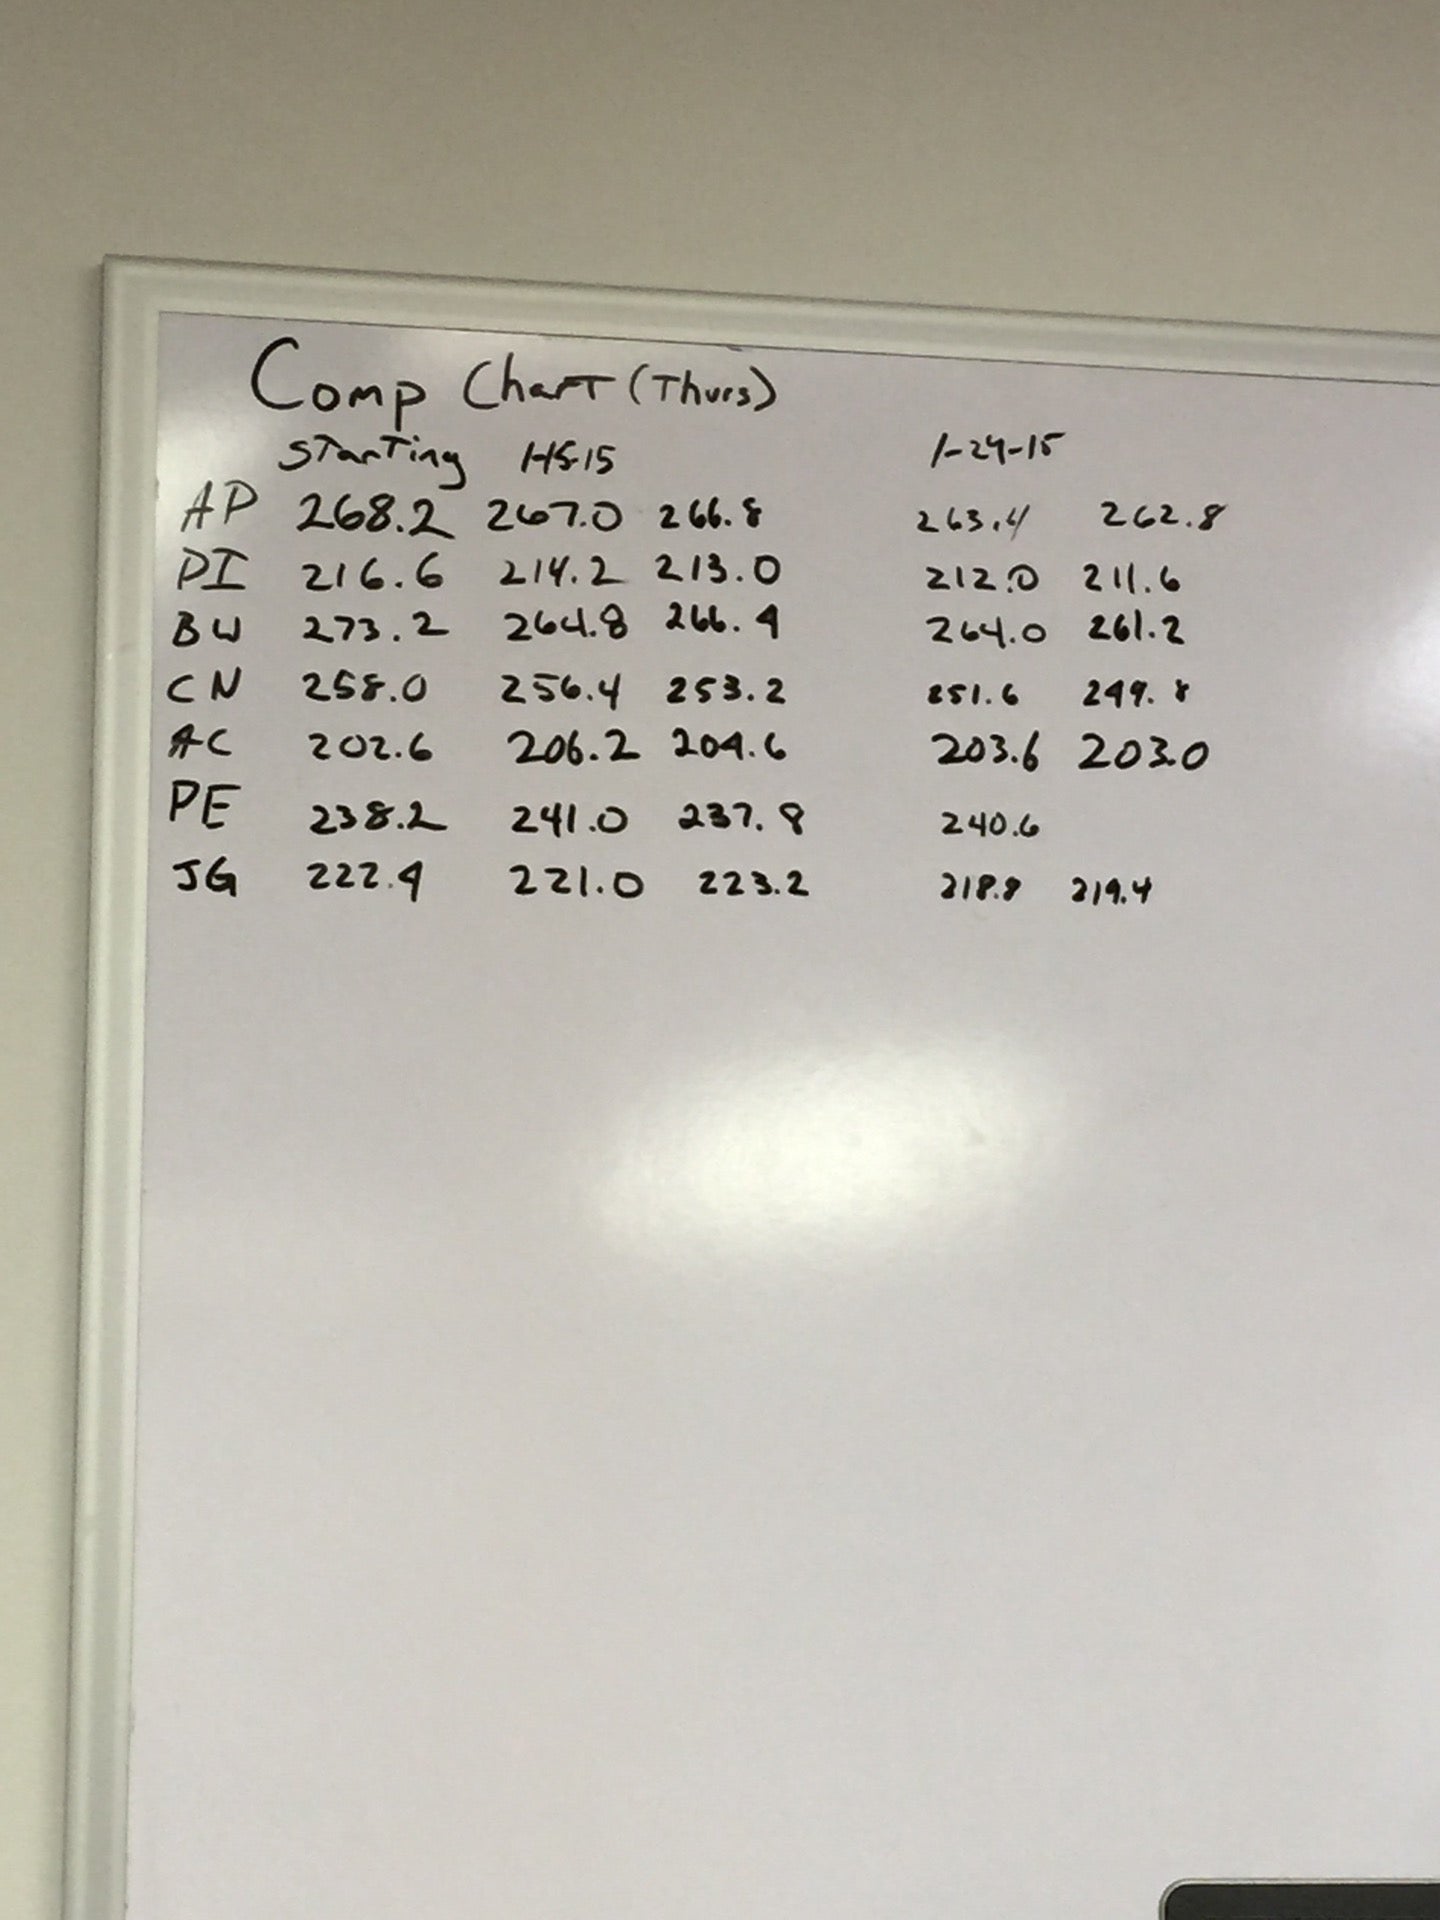 Comp Chart (Thurs)
Starting 1-15-15 1-29-15
AP 268.2 267.0 266.8 263.4 262.8
PI 216.6 214.2 213.0 212.0 211.6
BW 273.2 264.8 266.4 264.0 261.2
CN 258.0 256.4 253.2 251.6 249.8
AC 202.6 206.2 204.6 203.6 203.0
PE 238.2 241.0 237.8 240.6
JG 222.4 221.0 223.2 218.8 219.4